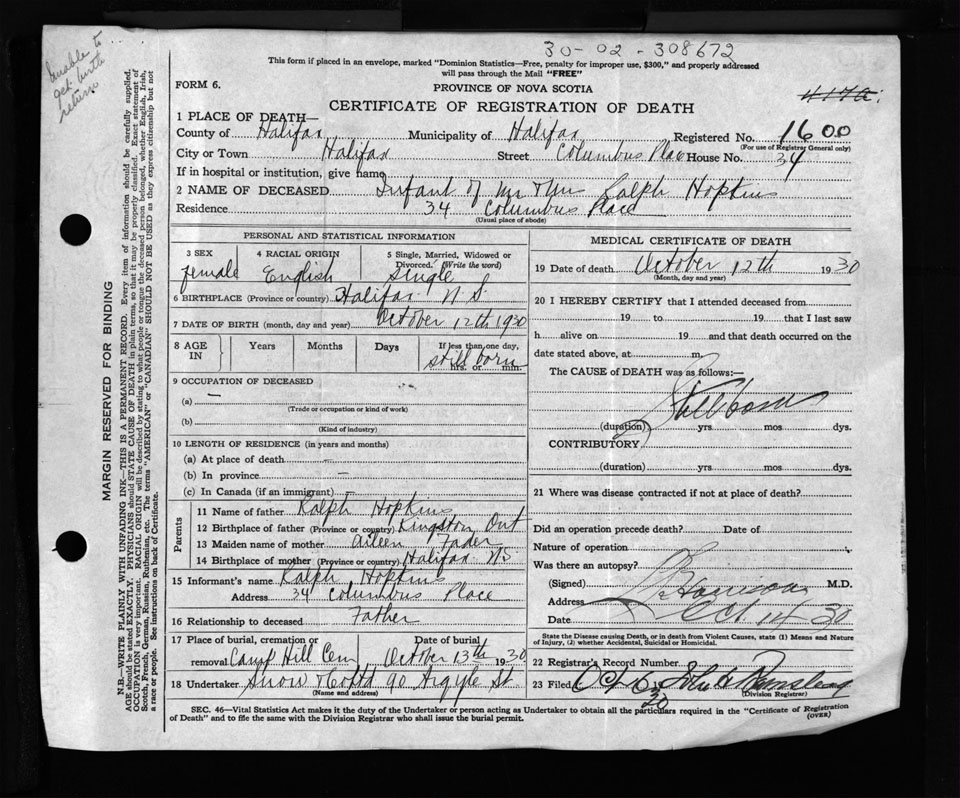 unable to
get birth
return
30-02-308672
This form if placed in an envelope, marked "Dominion Statistics—Free, penalty for improper use, $300," and properly addressed
will pass through the Mail "FREE"
FORM 6.
PROVINCE OF NOVA SCOTIA
CERTIFICATE OF REGISTRATION OF DEATH
417a.
1 PLACE OF DEATH—
County of Halifax Municipality of Halifax Registered No. 1600
(For use of Registrar General only)
City or Town Halifax Street Columbus Place House No. 34
If in hospital or institution, give name
2 NAME OF DECEASED Infant of Mr & Mrs Ralph Hopkins
Residence 34 Columbus Place
(Usual place of abode)
PERSONAL AND STATISTICAL INFORMATION
3 SEX 4 RACIAL ORIGIN 5 Single, Married, Widowed or
Divorced. (Write the word)
female English Single
6 BIRTHPLACE (Province or country) Halifax N S.
7 DATE OF BIRTH (month, day and year) October 12th 1930
8 AGE IN Years Months Days If less than one day,
still born
hrs. or min.
9 OCCUPATION OF DECEASED
(a) —
(Trade or occupation or kind of work)
(b)
(Kind of industry)
10 LENGTH OF RESIDENCE (in years and months)
(a) At place of death —
(b) In province —
(c) In Canada (if an immigrant) —
Parents
11 Name of father Ralph Hopkins
12 Birthplace of father (Province or country) Kingston Ont
13 Maiden name of mother Aileen Fader
14 Birthplace of mother (Province or country) Halifax NS
15 Informant's name Ralph Hopkins
Address 34 Columbus Place
16 Relationship to deceased Father
17 Place of burial, cremation or Date of burial
removal Camp Hill Cem October 13th 1930
18 Undertaker Snow & Co Ltd 90 Argyle St
(Name and address)
MEDICAL CERTIFICATE OF DEATH
19 Date of death October 12th 1930
(Month, day and year)
20 I HEREBY CERTIFY that I attended deceased from
19 to 19 that I last saw
h alive on 19 and that death occurred on the
date stated above, at m.
The CAUSE of DEATH was as follows:—
Stillborn
(duration) yrs mos dys.
CONTRIBUTORY
(duration) yrs mos dys.
21 Where was disease contracted if not at place of death?
Did an operation precede death? Date of
Nature of operation
Was there an autopsy?
(Signed) M.D.
Address
Date Oct. 14 30
State the Disease causing Death, or in death from Violent Causes, state (1) Means and Nature
of Injury, (2) whether Accidental, Suicidal or Homicidal.
22 Registrar's Record Number
23 Filed
(Division Registrar)
SEC. 46—Vital Statistics Act makes it the duty of the Undertaker or person acting as Undertaker to obtain all the particulars required in the "Certificate of Registration
of Death" and to file the same with the Division Registrar who shall issue the burial permit.
(OVER)
MARGIN RESERVED FOR BINDING
N.B.—WRITE PLAINLY WITH UNFADING INK—THIS IS A PERMANENT RECORD. Every item of information should be carefully supplied.
AGE should be stated EXACTLY. PHYSICIANS should STATE CAUSE OF DEATH in plain terms, so that it may be properly classified. Exact statement of
OCCUPATION is very important. RACIAL ORIGIN will be described by stating to what people or tongue the deceased person belonged, whether English, Irish,
Scotch, French, German, Russian, Ruthenian, etc. The terms "AMERICAN" or "CANADIAN" SHOULD NOT BE USED as they express citizenship but not
a race or people. See instructions on back of Certificate.